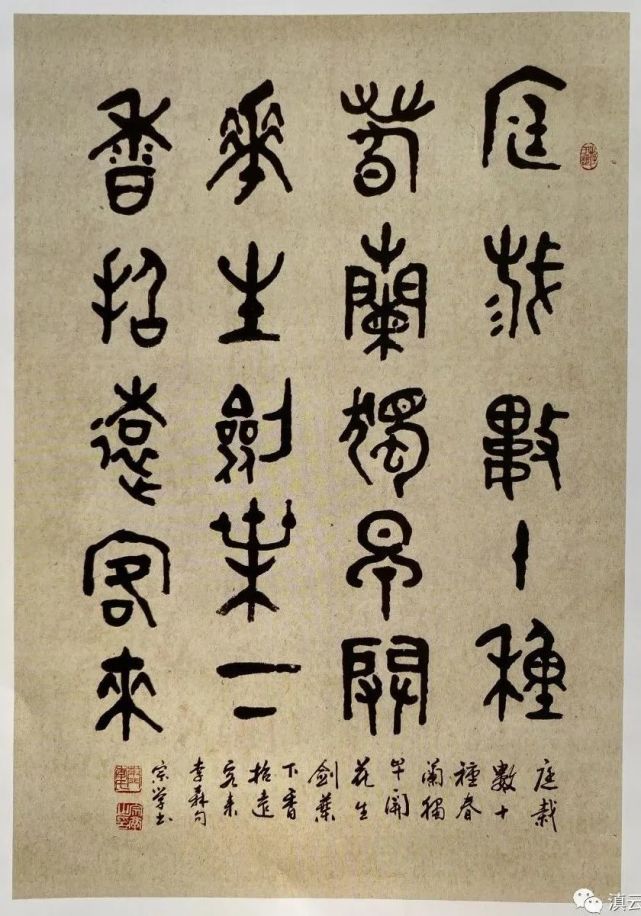 庭栽數十種
春蘭獨早開
花生劍葉下
香招遠客來
庭栽
數十
種春
蘭獨
早開
花生
劍葉
下香
招遠
客来
李森句
宗学书
滇云